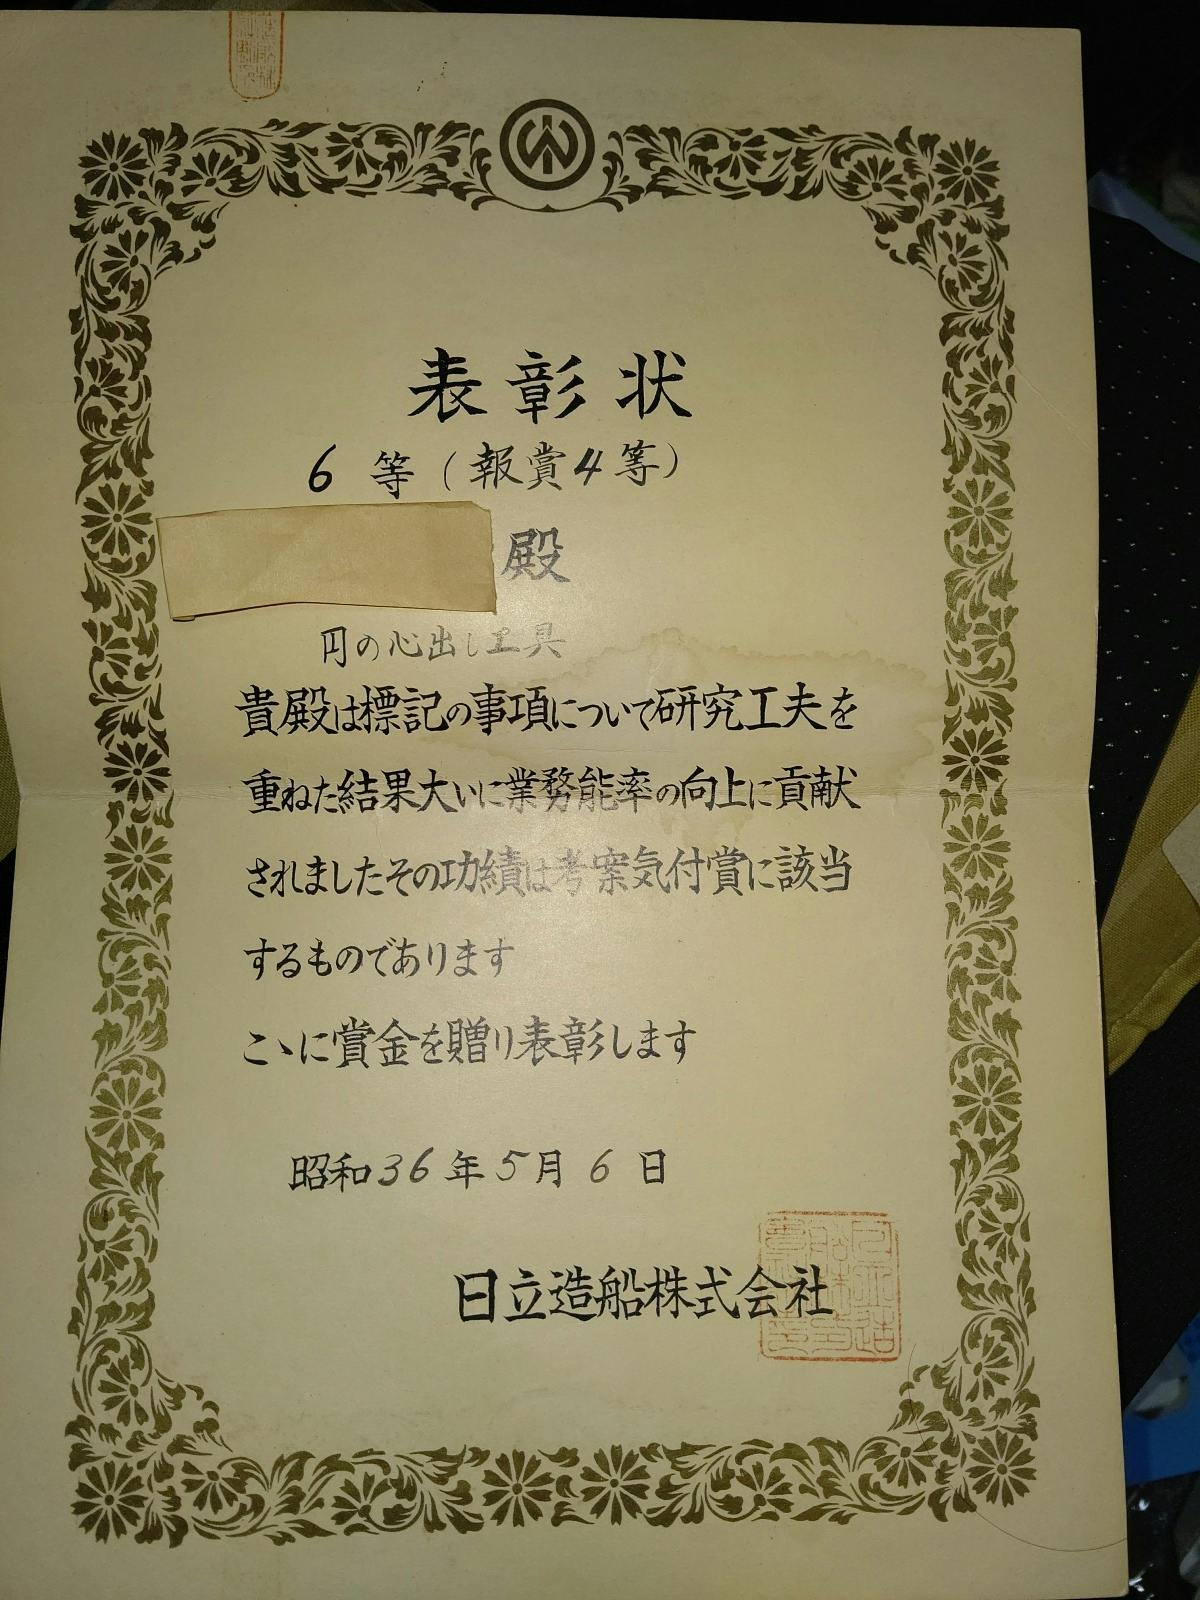 表彰状
6等(報賞4等)
殿
円の心出し工具
貴殿は標記の事項について研究工夫を
重ねた結果大いに業務能率の向上に貢献
されましたその功績は考案気付賞に該当
するものであります
こゝに賞金を贈り表彰します
昭和36年5月6日
日立造船株式会社